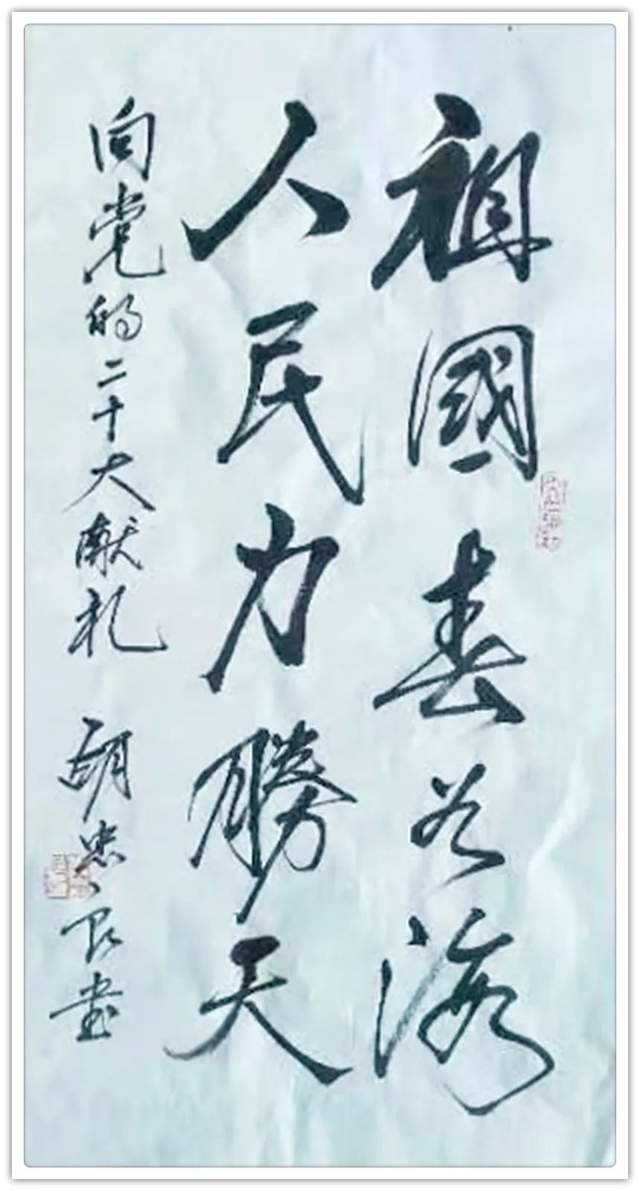 祖國春海
人民力勝天
向党的二十大献礼
胡忠良書